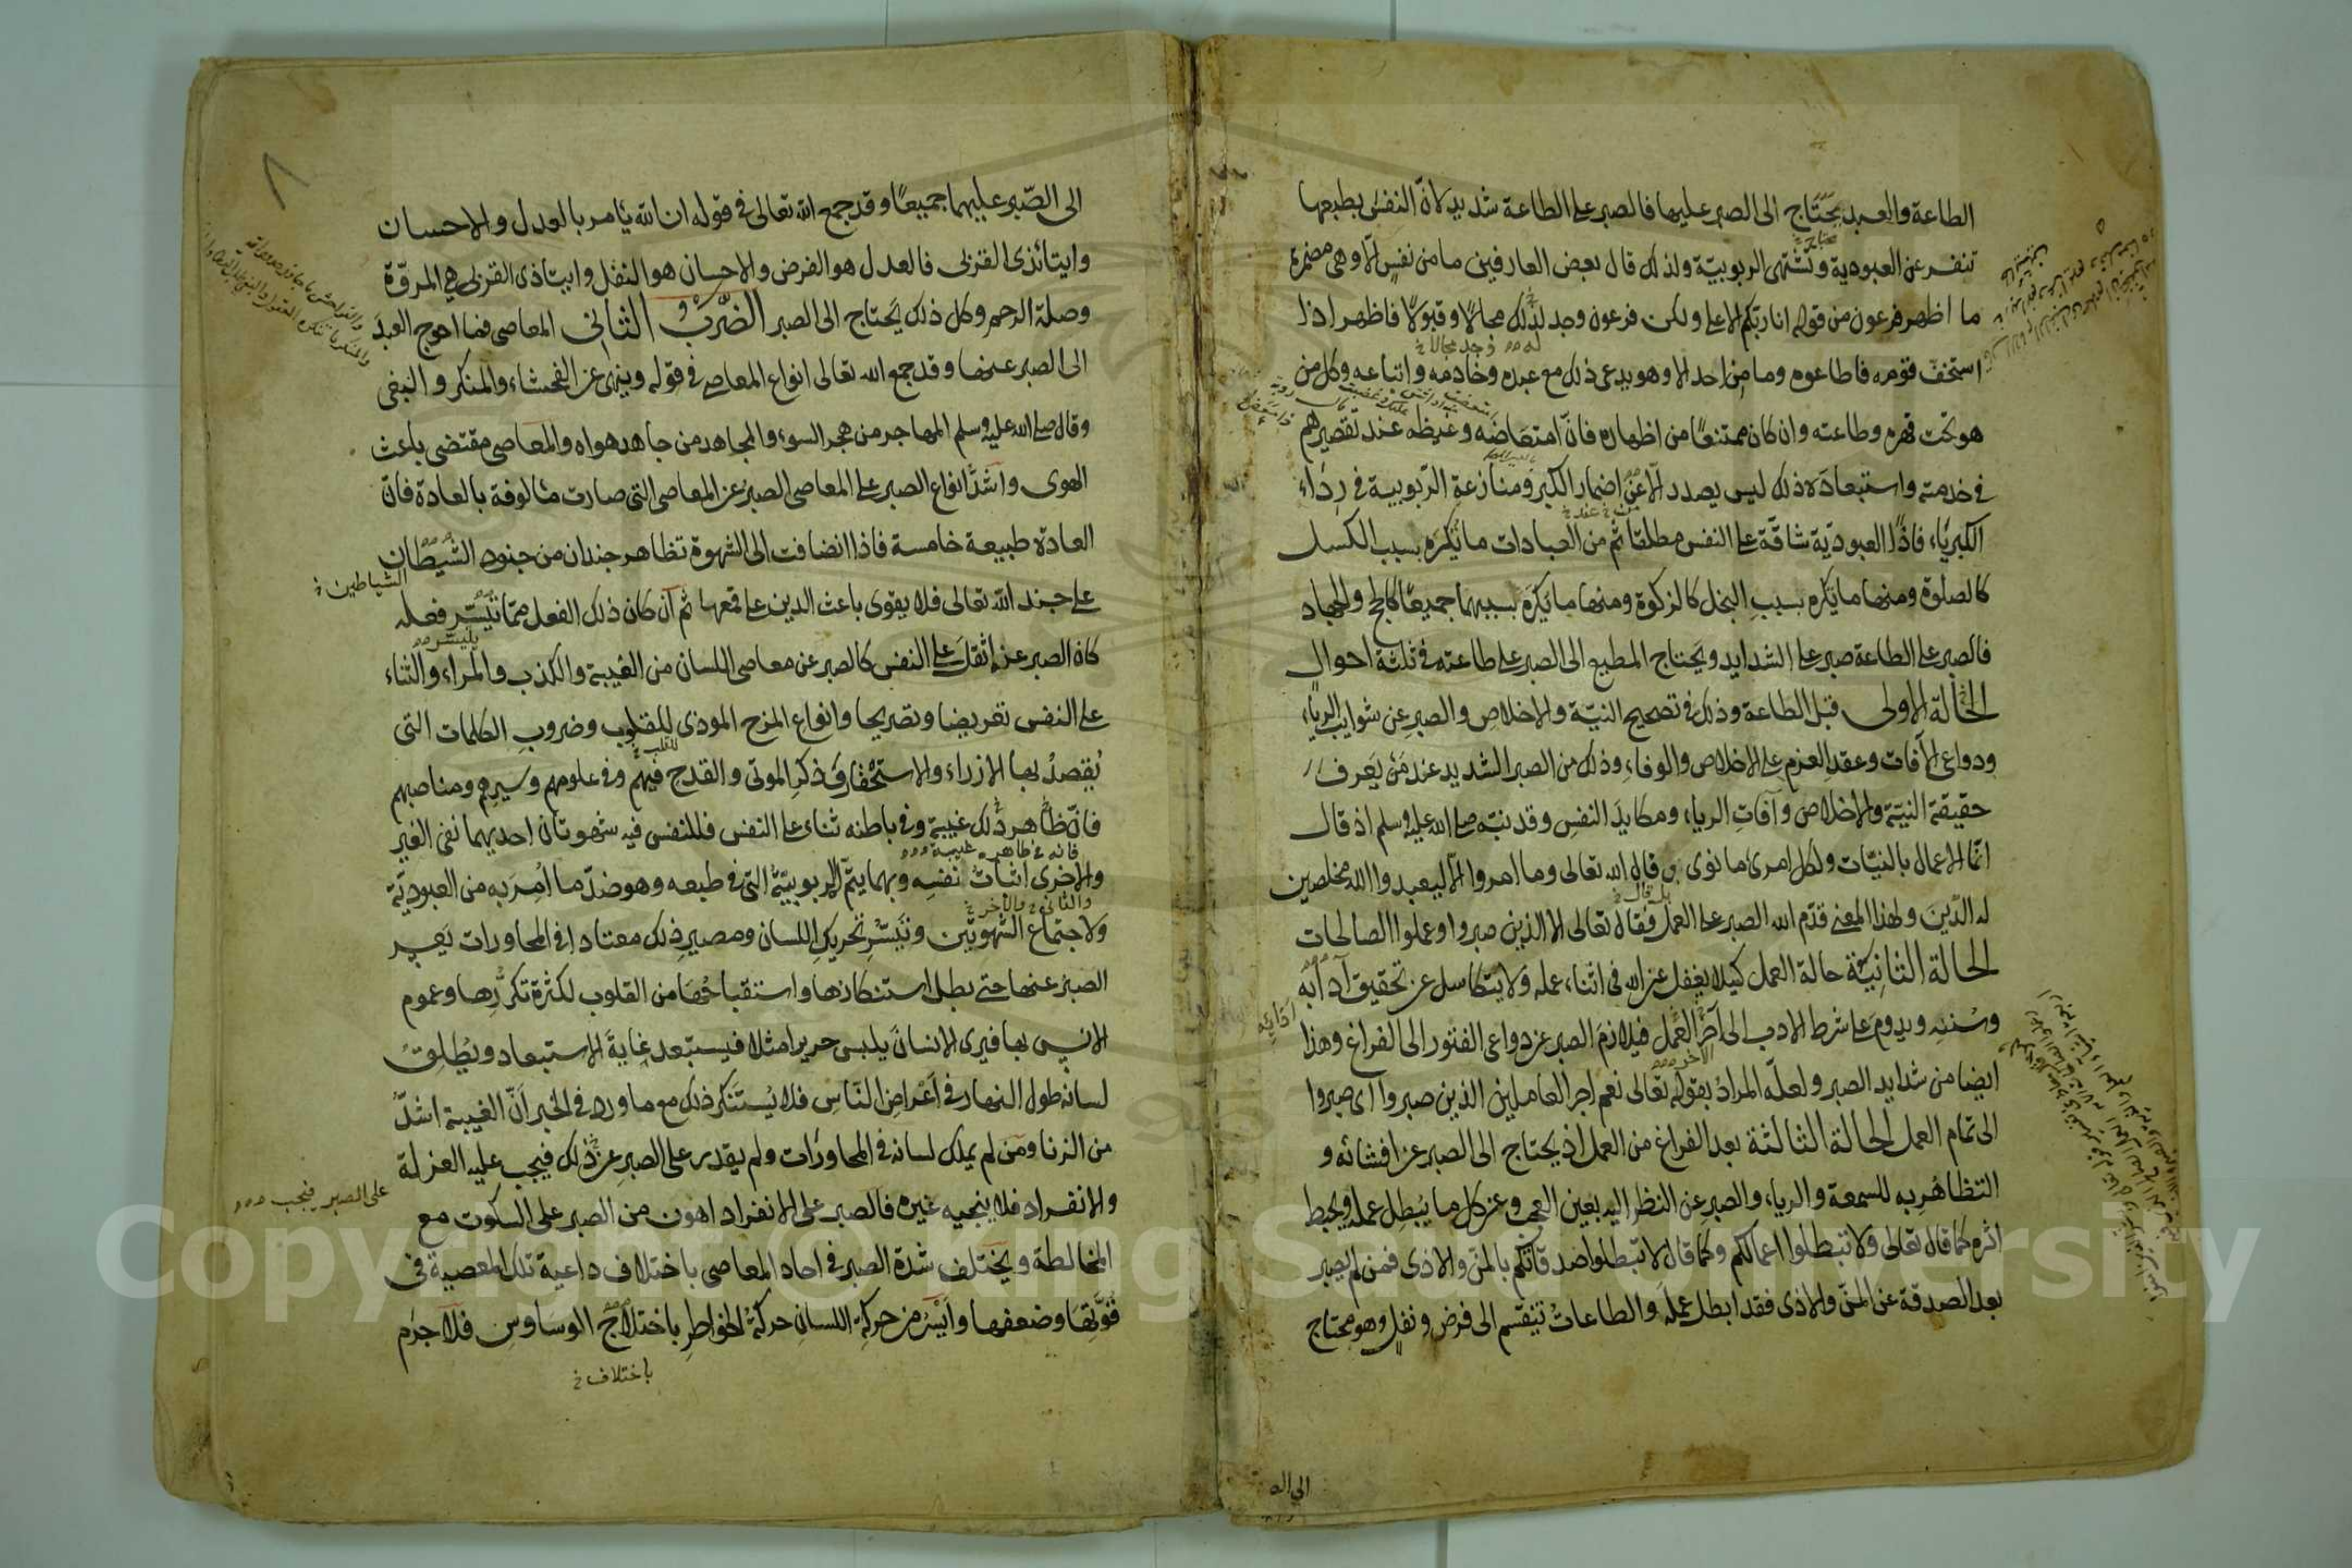 الطاعة والعبد يحتاج الى الصبر عليها فالصبر على الطاعة شديد لانّ النفس بطبعها
تنفر عن العبودية وتشتهى الربوبيّة ولذلك قال بعض العارفين ما من نفس الّا وهى مضمرة
ما اظهر فرعون من قوله انا ربكم الاعلى ولكن فرعون وجد لذلك مجالًا وقبولًا فاظهر اذا
استخف قومه فاطاعوه وما من احد الا وهو يدعى ذلك مع عبده وخادمه واتباعه وكل من
هو تحت قهره وطاعته وان كان ممتنعًا من اظهاره فانّ امتعاضه وغيظه عند تقصيرهم
فى خدمته واستبعاده ذلك ليس يصدر الّا عن اضمار الكبر ومنازعة الرّبوبية فى رداء
الكبرياء فاذًا العبوديّة شاقّة على النفس مطلقا ثم من العبادات ما يكره بسبب الكسل
كالصلوة ومنها ما يكره بسبب البخل كالزكوة ومنها ما يكره بسببهما جميعًا كالحج والجهاد
فالصبر على الطاعة صبر على الشدايد ويحتاج المطيع الى الصبر على طاعته فى ثلثة احوال
الحالة الاولى قبل الطاعة وذلك فى تصحيح النيّة والاخلاص والصبر عن شوايب الرياء
ودواعى الآفات وعقد العزم على الاخلاص والوفاء وذلك من الصبر الشديد عند من يعرف
حقيقة النيّة والاخلاص وآفات الرياء ومكايد النفس وقد نبّه صلى الله عليه وسلم اذ قال
انّما الاعمال بالنيّات ولكل امرئ ما نوى وقال الله تعالى وما امروا الّا ليعبدوا الله مخلصين
له الدّين ولهذا المعنى قدّم الله الصبر على العمل فقال تعالى الا الذين صبروا وعملوا الصالحات
الحالة الثانيّة حالة العمل كيلا يغفل عن الله فى اثناء عمله ولا يتكاسل عن تحقيق آدابه
وسننه ويدوم على شرط الادب الى آخر العمل فيلازم الصبر عن دواعى الفتور الى الفراغ وهذا
ايضا من شدايد الصبر ولعلّه المراد بقوله تعالى نعم اجر العاملين الذين صبروا اى صبروا
الى تمام العمل الحالة الثالثة بعد الفراغ من العمل اذ يحتاج الى الصبر عن افشائه و
التظاهر به للسمعة والرياء والصبر عن النظر اليه بعين العجب وعن كل ما يبطل عمله ويحبط
اثره كما قال تعالى ولا تبطلوا اعمالكم وكما قال لا تبطلوا صدقاتكم بالمنّ والاذى فمن لم يصبر
بعد الصدقة عن المنّ والاذى فقد ابطل عمله والطاعات تنقسم الى فرض ونفل وهو محتاج
الى الصّبر عليهما جميعًا وقد جمع الله تعالى فى قوله ان الله يأمر بالعدل والاحسان
وايتائ ذى القربى فالعدل هو الفرض والاحسان هو النفل وايتاء ذى القربى هى المروّة
وصلة الرحم وكل ذلك يحتاج الى الصبر الضرب الثانى المعاصى فما احوج العبد
الى الصبر عنها وقد جمع الله تعالى انواع المعاصى فى قوله وينهى عن الفحشاء والمنكر والبغى
وقال صلى الله عليه وسلم المهاجر من هجر السوء والمجاهد من جاهد هواه والمعاصى مقتضى باعث
الهوى واشدّ انواع الصبر على المعاصى الصبر عن المعاصى التى صارت مألوفة بالعادة فانّ
العادة طبيعة خامسة فاذا انضافت الى الشهوة تظاهر جندان من جنود الشيطان
الشياطين خ
على جند الله تعالى فلا يقوى باعث الدين على قمعها ثم ان كان ذلك الفعل ممّا تيسّر فعله
كان الصبر عنه اثقل على النفس كالصبر عن معاصى اللسان من الغيبة والكذب والمراء والثناء
على النفس تعريضا وتصريحا وانواع المزح الموذى للقلوب وضروب الكلمات التى
يُقصدُ بها الازراء والاستحقار وذكر الموتى والقدح فيهم وفى علومهم وسيرهم ومناصبهم
فانّ ظاهر ذلك غيبة وفى باطنه ثناء على النفس فللنفس فيه شهوتان احديهما نفى الغير
والاخرى اثبات نفسه وبهما يتمّ الربوبيّة التى فى طبعه وهو ضدّ ما اُمر به من العبوديّة
ولاجتماع الشهوتين وتيسّر تحريك اللسان ومصير ذلك معتادا فى المحاورات يعسر
الصبر عنها حتى بطل استنكارها واستقباحها من القلوب لكثرة تكرّرها وعموم
الانس بها فيرى الانسان يلبس حريرا مثلا فيستبعد غاية الاستبعاد ويُطلق
لسانه طول النهار فى اعراض النّاس فلا يُستنكر ذلك مع ما ورد فى الخبر انّ الغيبة اشدّ
من الزنا ومن لم يملك لسانه فى المحاورات ولم يقدر على الصبر عن ذلك فيجب عليه العزلة
على الصبر فيجب
والانفراد فلا ينجيه غيره فالصبر على الانفراد اهون من الصبر على السكوت مع
المخالطة ويختلف شدة الصبر فى احاد المعاصى باختلاف داعية تلك المعصية فى
قوّتها وضعفها وايسر من حركة اللسان حركة الخواطر باختلاج الوساوس فلا جرم
باختلاف خ
Copyright © King Saud University